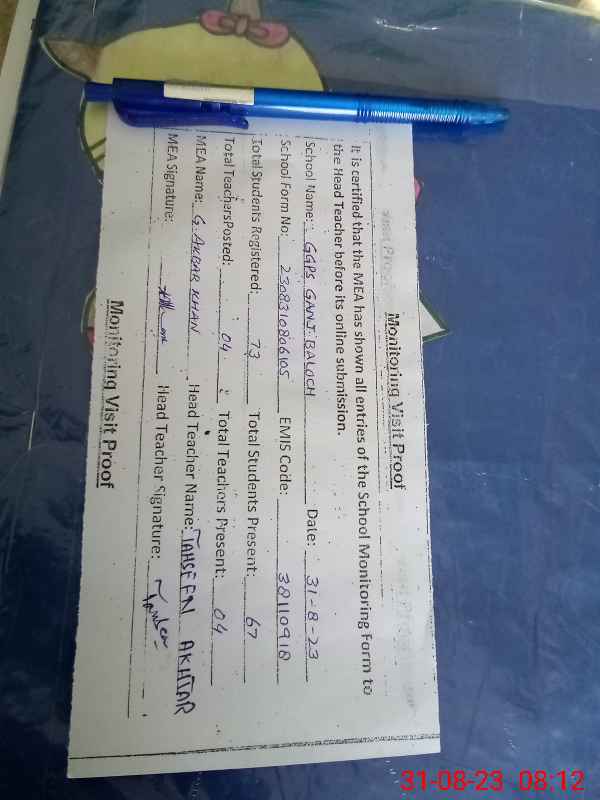 Monitoring Visit Proof
It is certified that the MEA has shown all entries of the School Monitoring Form to
the Head Teacher before its online submission.
School Name: GGPS GANJ BALOCH Date: 31-8-23
School Form No: 2308310806105 EMIS Code: 38110918
Total Students Registered: 73 Total Students Present: 67
Total Teachers Posted: 04 Total Teachers Present: 04
MEA Name: G. AKBAR KHAN Head Teacher Name: TAHSEEN AKHTAR
MEA Signature: Head Teacher Signature:
Monitoring Visit Proof
31-08-23 08:12